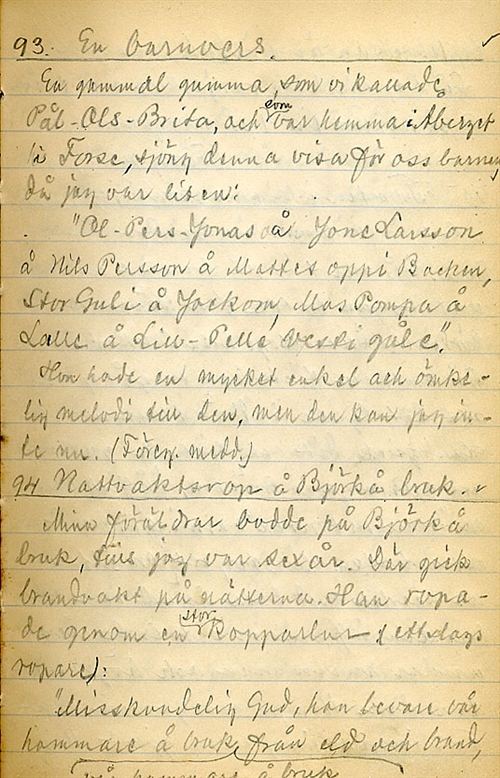 93. En barnvers.
En gammal gumma, som vi kallade
Pål-Ols-Brita, och som var hemma i Åberget
i Forse, sjöng denna visa för oss barnen
då jag var liten:
"Ol-Pers-Jonas å Jone Larsson
å Nils Persson å Mattes oppi Backen,
Stor Guli å Jockom, Mas Pompa å
Lalle å Lill-Pelle vesti gåle".
Hon hade en mycket enkel och ömke-
lig melodi till den, men den kan jag in-
te nu. (Föreg. medd.)
94 Nattvaktsrop å Björkå bruk.
Mina föräldrar bodde på Björkå
bruk, tills jag var sex år. Där gick
brandvakt på nätterna. Han ropa-
de genom en stor kopparlur (ett slags
ropare):
"Misskundelig Gud, han bevare vår
hammare å bruk från eld och brand,
å bruk